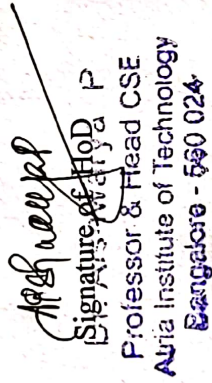 Signature of HoD
Dr Aishwarya P
Professor & Head CSE
Atria Institute of Technology
Bangalore - 560 024